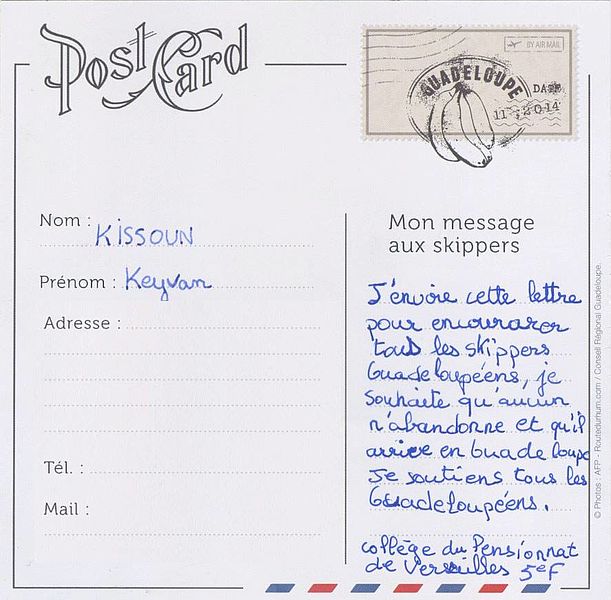 Post Card
BY AIR MAIL
GUADELOUPE
DATE
11 . 2014
Nom : KISSOUN
Prénom : Keyvan
Adresse :
Tél. :
Mail :
Mon message
aux skippers
J'envoie cette lettre
pour encouraror
tous les skippers
Guadeloupéens, je
souhaite qu'aucun
n'abandonne et qu'il
arrive en Guadeloupe
Je soutiens tous les
Guadeloupéens.
collège du Pensionnat
de Versailles 5eF
© Photos : AFP - Routedurhum.com / Conseil Régional Guadeloupe.